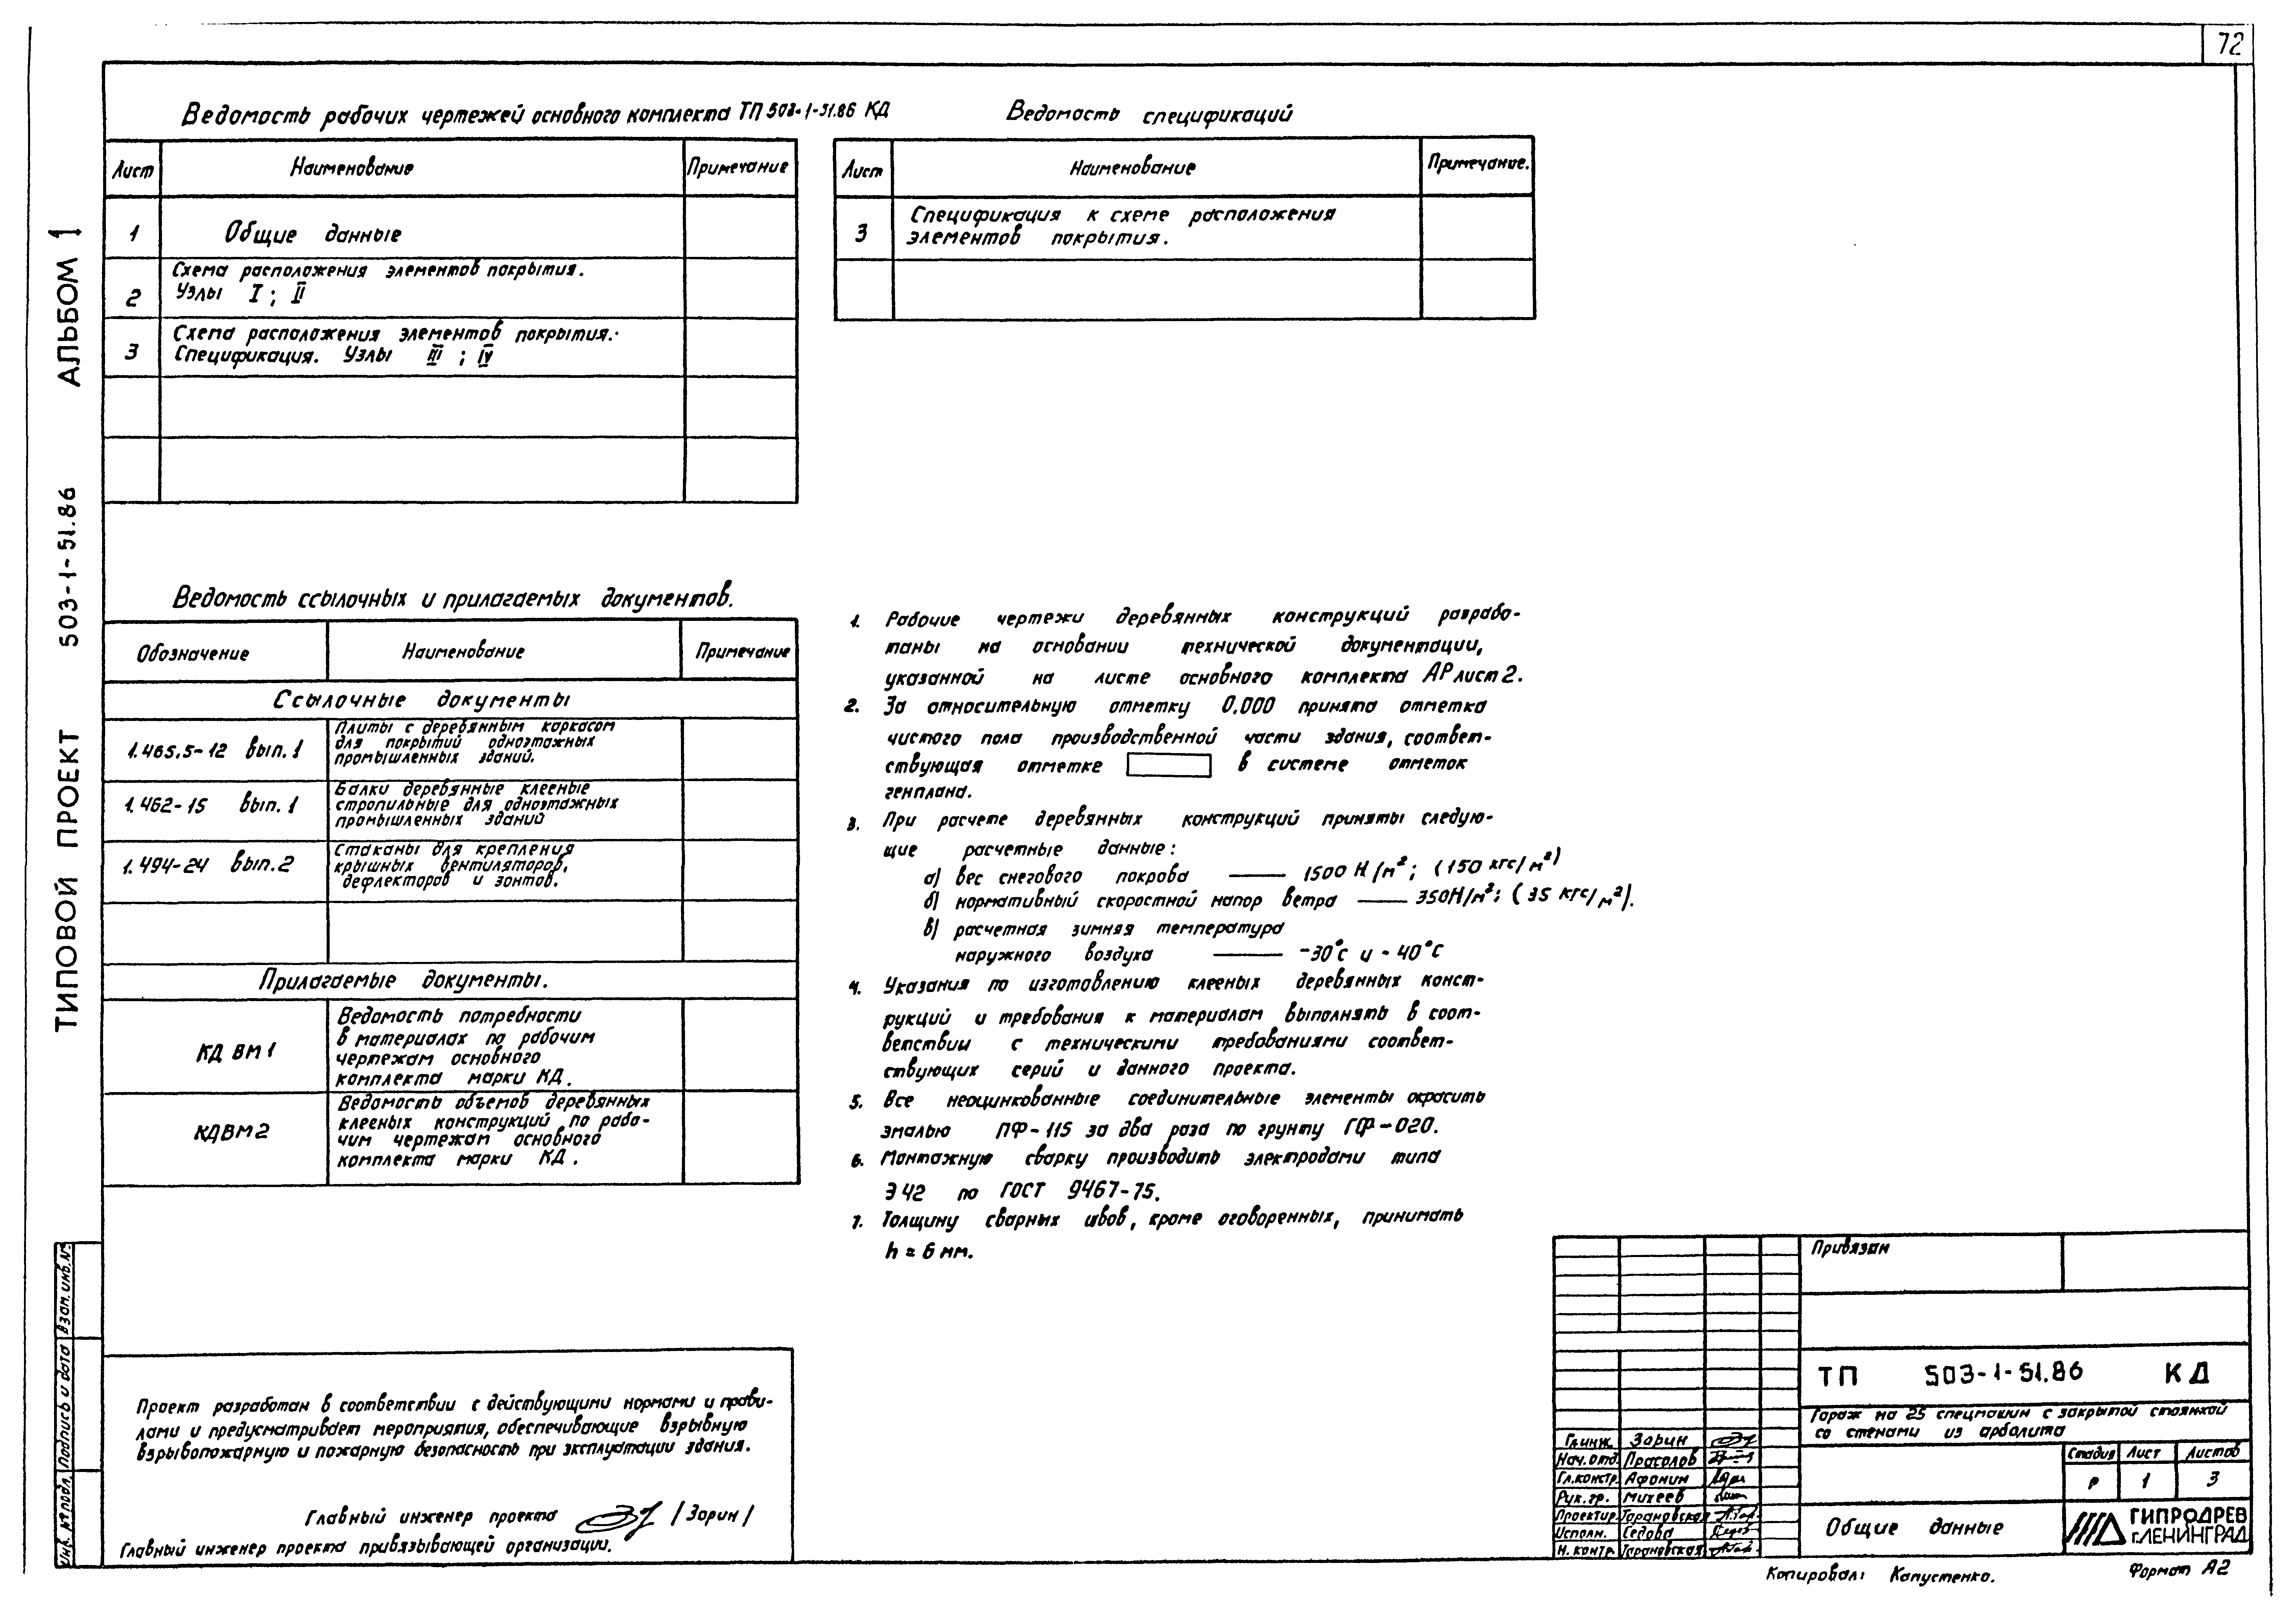 72
Ведомость рабочих чертежей основного комплекта ТП 503-1-51.86 КД
Лист Наименование Примечание
1 Общие данные
Схема расположения элементов покрытия.
2 Узлы I ; II
Схема расположения элементов покрытия.
3 Спецификация. Узлы III ; IV
Ведомость спецификаций
Лист Наименование Примечание.
Спецификация к схеме расположения
3 элементов покрытия.
Ведомость ссылочных и прилагаемых документов.
Обозначение Наименование Примечание
Ссылочные документы
1.465.5-12 вып. 1
Плиты с деревянным каркасом
для покрытий одноэтажных
промышленных зданий.
1.462-15 вып. 1
Балки деревянные клееные
стропильные для одноэтажных
промышленных зданий
1.494-24 вып. 2
Стаканы для крепления
крышных вентиляторов,
дефлекторов и зонтов.
Прилагаемые документы.
КД ВМ1
Ведомость потребности
в материалах по рабочим
чертежам основного
комплекта марки КД.
КДВМ2
Ведомость объемов деревянных
клееных конструкций по рабо-
чим чертежам основного
комплекта марки КД.
1. Рабочие чертежи деревянных конструкций разрабо-
таны на основании технической документации,
указанной на листе основного комплекта АР лист 2.
2. За относительную отметку 0.000 принята отметка
чистого пола производственной части здания, соответ-
ствующая отметке в системе отметок
генплана.
3. При расчете деревянных конструкций приняты следую-
щие расчетные данные:
а) вес снегового покрова —— 1500 Н/м²; (150 кгс/м²)
б) нормативный скоростной напор ветра —— 350Н/м²; (35 кгс/м²).
в) расчетная зимняя температура
наружного воздуха —— -30°с и - 40°С
4. Указания по изготовлению клееных деревянных конст-
рукций и требования к материалам выполнять в соот-
ветствии с техническими требованиями соответ-
ствующих серий и данного проекта.
5. Все неоцинкованные соединительные элементы окрасить
эмалью ПФ-115 за два раза по грунту ГФ-020.
6. Монтажную сварку производить электродами типа
Э42 по ГОСТ 9467-75.
7. Толщину сварных швов, кроме оговоренных, принимать
h = 6 мм.
Проект разработан в соответствии с действующими нормами и прави-
лами и предусматривает мероприятия, обеспечивающие взрывную
взрывопожарную и пожарную безопасность при эксплуатации здания.
Главный инженер проекта /Зорин/
Главный инженер проекта привязывающей организации.
Привязан
ТП 503-1-51.86 КД
Гараж на 25 спецмашин с закрытой стоянкой
со стенами из арболита
Стадия Лист Листов
Р 1 3
Общие данные
ГИПРОДРЕВ
г.ЛЕНИНГРАД
Гл.инж. Зорин
Нач.отд. Прасолов
Гл.констр. Афонин
Рук.гр. Михеев
Проектир. Тарановская
Исполн. Седова
Н. контр. Тарановская
Копировал: Капустенко.
Формат А2
ТИПОВОЙ ПРОЕКТ 503-1-51.86 АЛЬБОМ 1
Инв. № подл. Подпись и дата Взам. инв.№